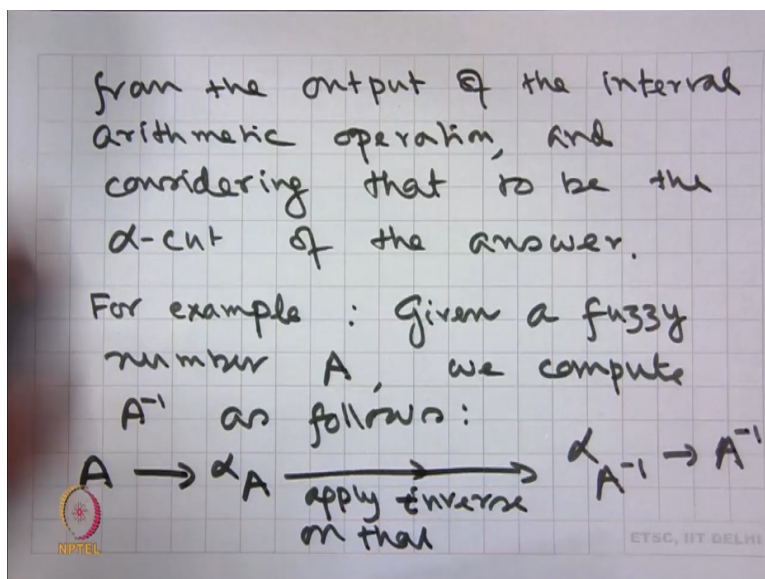 from the output of the interval
arithmetic operation, and
considering that to be the
α-cut of the answer.
For example : Given a fuzzy
number A, we compute
A⁻¹ as follows:
A → αA → αA⁻¹ → A⁻¹
apply inverse
on that
NPTEL
ETSC, IIT DELHI